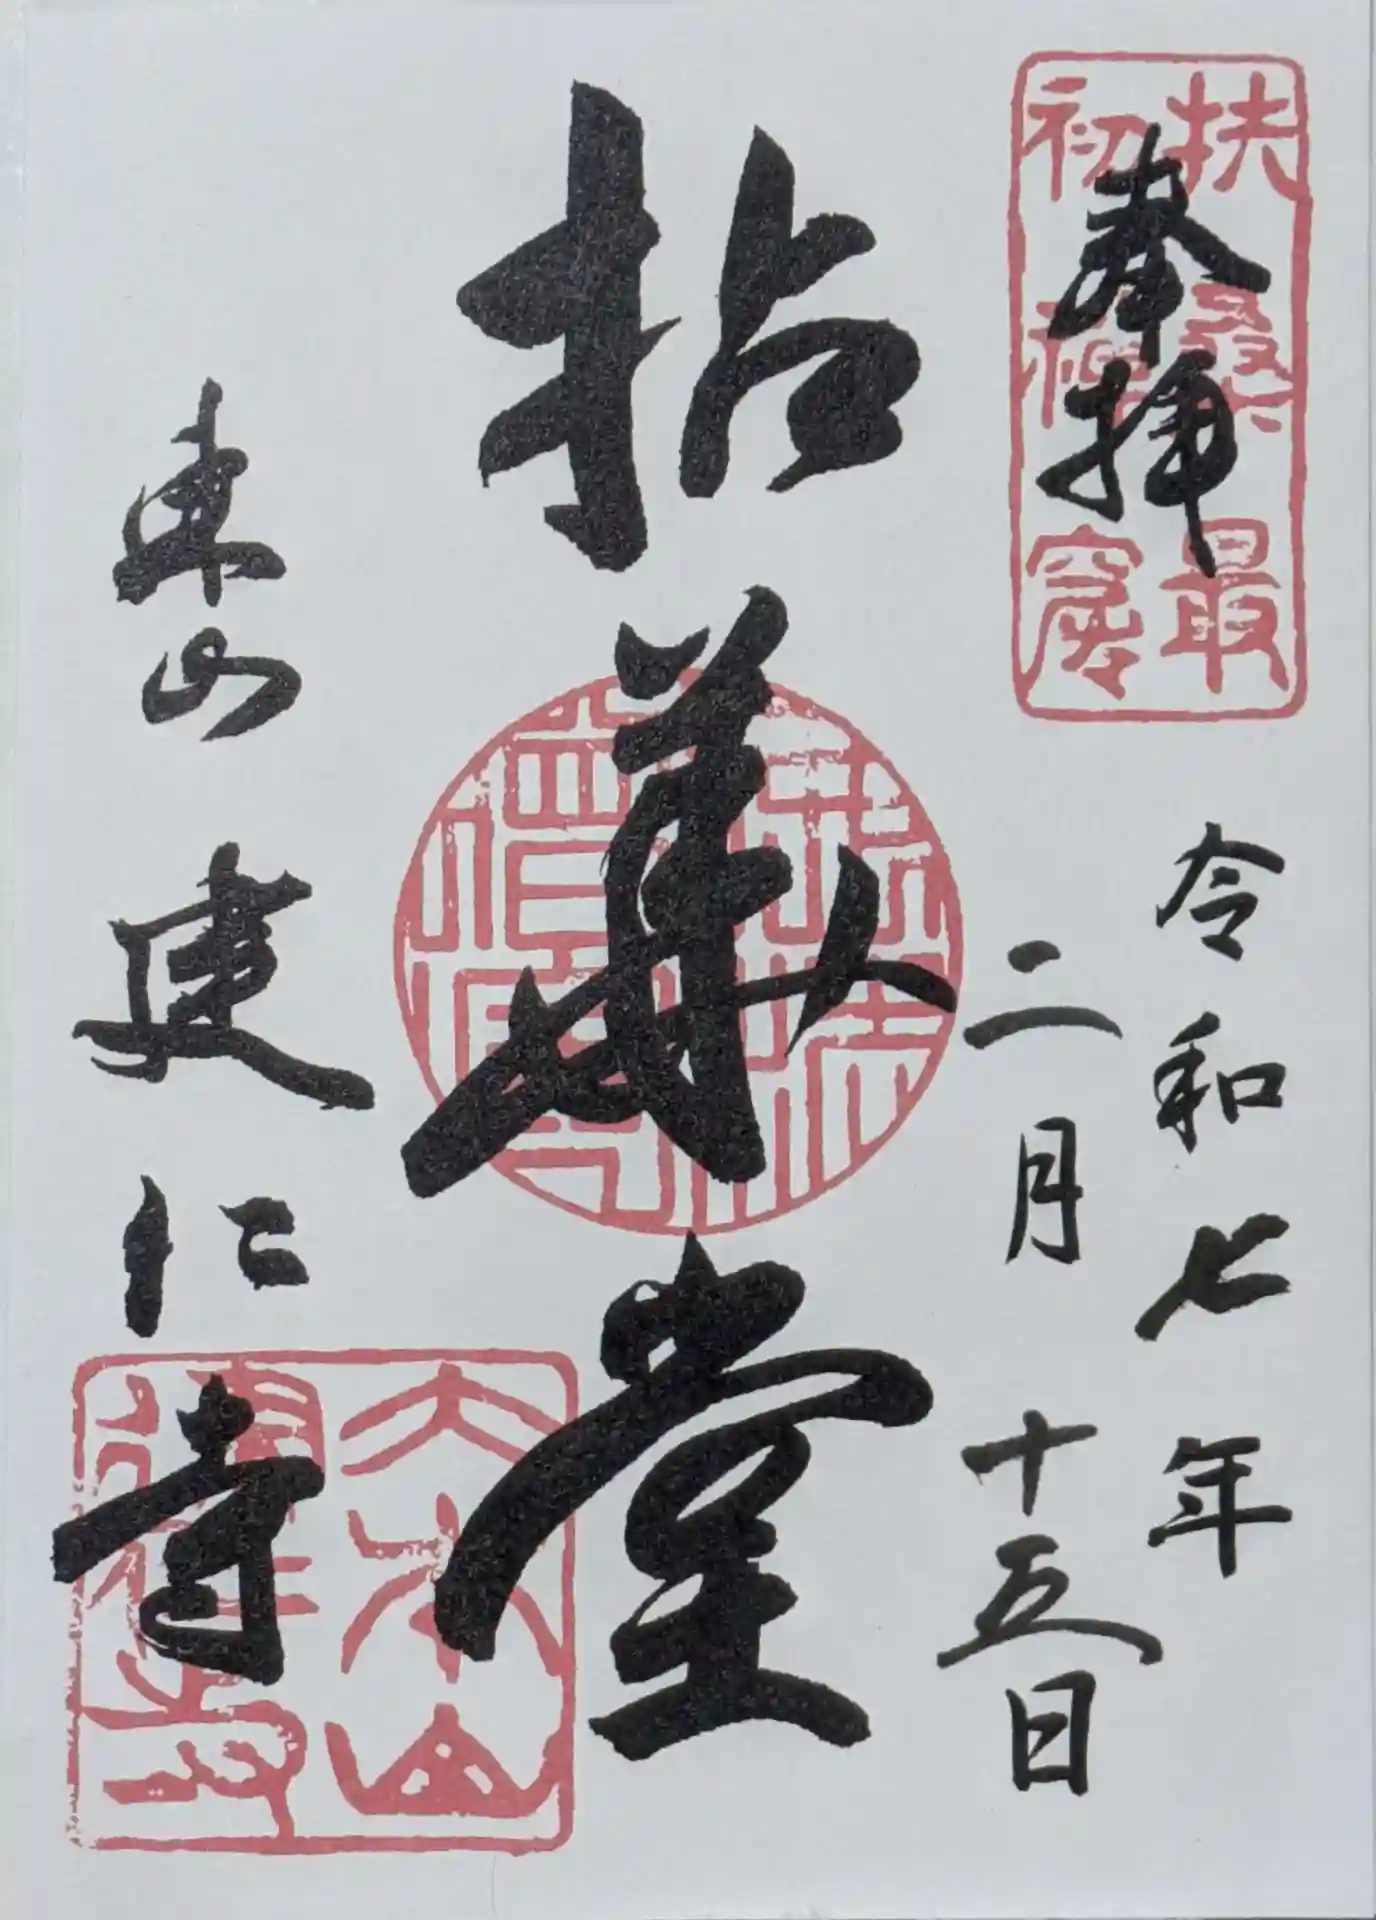 奉拝
扶桑最
初禅窟
令和七年
二月十五日
拈華堂
東山
建仁寺
大本山
建仁寺